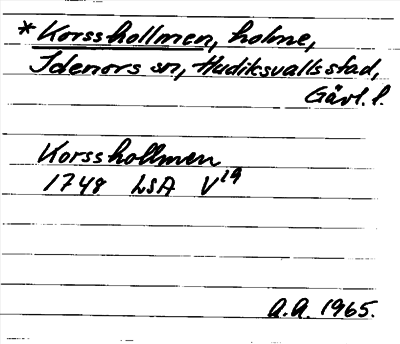 *Korsshollmen, holme,
Idenors sn, Hudiksvalls stad,
Gävl. l.
Korsshollmen
1748 LSA V19
A.A. 1965.